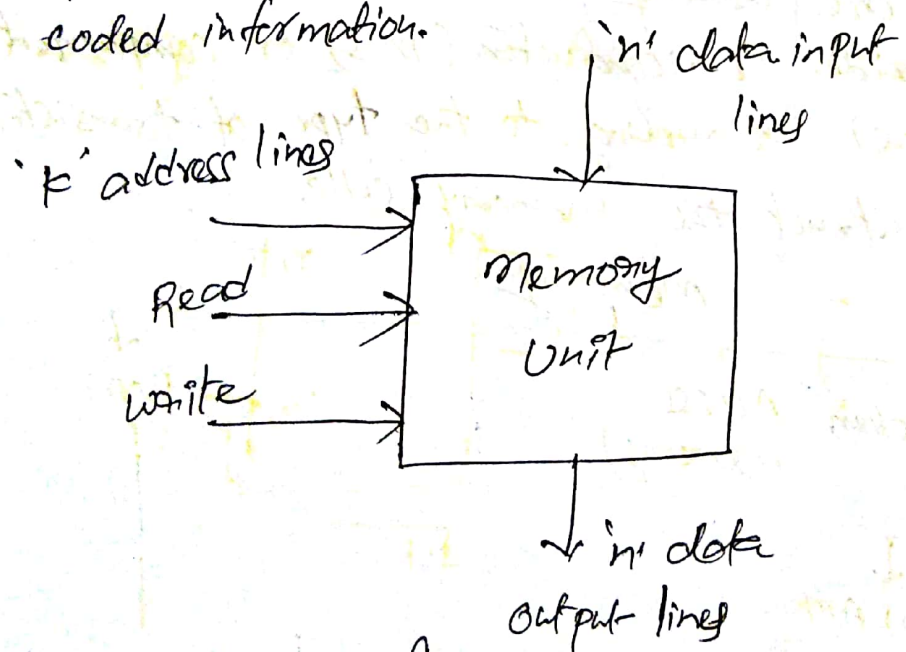 coded information.
'n' data input
lines
'k' address lines
Read
Memory
Unit
write
'n' data
output lines